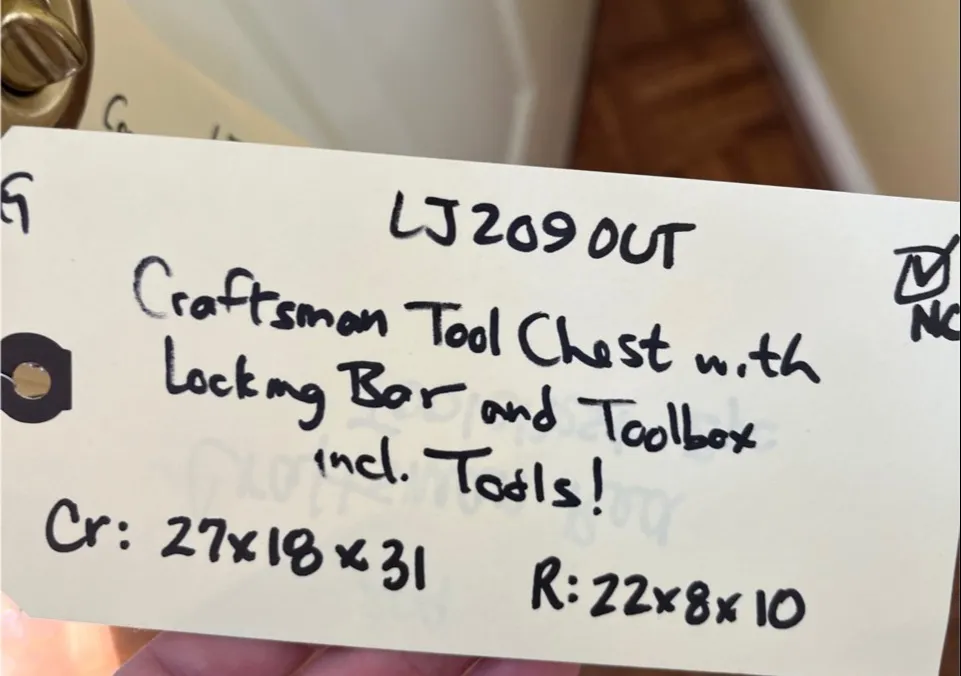 G
LJ209 OUT
NC
Craftsman Tool Chest with
Locking Bar and Toolbox
incl. Tools!
Cr: 27x18x31
R: 22x8x10